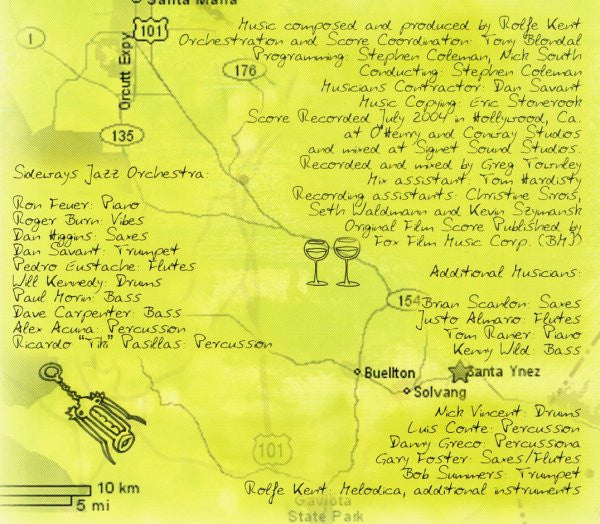 Santa Maria
1
101
Orcutt Expy
176
135
Music composed and produced by Rolfe Kent
Orchestration and Score Coordination: Tony Blondal
Programming: Stephen Coleman, Nick South
Conducting: Stephen Coleman
Musicians Contractor: Dan Savant
Music Copying: Eric Stonerook
Score Recorded July 2004 in Hollywood, Ca.
at O'Henry and Conway Studios
and mixed at Signet Sound Studios.
Recorded and mixed by Greg Townley
Mix assistant: Tom Hardisty
Recording assistants: Christine Sirois,
Seth Waldmann and Kevin Szymanski
Original Film Score Published by
Fox Film Music Corp. (BMI)
Sideways Jazz Orchestra:
Ron Feuer: Piano
Roger Burn: Vibes
Dan Higgins: Saxes
Dan Savant: Trumpet
Pedro Eustache: Flutes
Will Kennedy: Drums
Paul Morin: Bass
Dave Carpenter: Bass
Alex Acuna: Percussion
Ricardo "Tiki" Pasillas: Percussion
Additional Musicians:
154
Brian Scanlon: Saxes
Justo Almario: Flutes
Tom Ranier: Piano
Kenny Wild: Bass
Buellton
Santa Ynez
Solvang
Nick Vincent: Drums
Luis Conte: Percussion
Danny Greco: Percussiona
Gary Foster: Saxes/Flutes
Bob Summers: Trumpet
Rolfe Kent: Melodica, additional instruments
101
10 km
5 mi
Gaviota
State Park